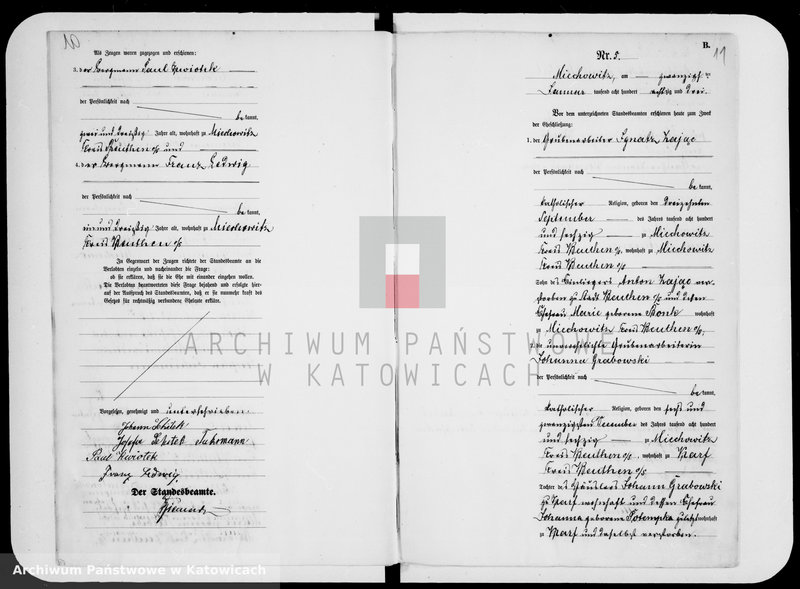 10
Als Zeugen waren zugezogen und erschienen:
3. der Bergmann Paul Kwiotek
der Persönlichkeit nach
be kannt,
zwei und dreißig Jahre alt, wohnhaft zu Miechowitz
Kreis Beuthen o/s und
4. der Bergmann Franz Ledwig
der Persönlichkeit nach
be kannt,
und dreißig Jahre alt, wohnhaft zu Miechowitz
Kreis Beuthen o/s
In Gegenwart der Zeugen richtete der Standesbeamte an die
Verlobten einzeln und nacheinander die Frage:
ob sie erklären, daß sie die Ehe mit einander eingehen wollen.
Die Verlobten beantworteten diese Frage bejahend und erfolgte hier-
auf der Ausspruch des Standesbeamten, daß er sie nunmehr kraft des
Gesetzes für rechtmäßig verbundene Eheleute erkläre.
Vorgelesen, genehmigt und unterschrieben
Johann
Josefa Fuhrmann
Paul Kwiotek
Franz Ledwig
Der Standesbeamte.
B.
11
Nr. 5.
Miechowitz, am zwanzigsten
Januar tausend acht hundert achtzig und drei.
Vor dem unterzeichneten Standesbeamten erschienen heute zum Zweck
der Eheschließung:
1. der Grubenarbeiter Ignatz Zajac
der Persönlichkeit nach
be kannt,
katholischer Religion, geboren den dreizehnten
September des Jahres tausend acht hundert
und sechzig zu Miechowitz
Kreis Beuthen o/s, wohnhaft zu Miechowitz
Kreis Beuthen o/s
Sohn des Einliegers Anton Zajac ver-
storben zu Stadt Beuthen o/s und dessen
Ehefrau Marie geborene wohnhaft
zu Miechowitz Kreis Beuthen o/s;
2. die unverehelichte Grubenarbeiterin
Johanna Grabowski
der Persönlichkeit nach
be kannt,
katholischer Religion, geboren den sechs und
zwanzigsten December des Jahres tausend acht hundert
und sechzig zu Miechowitz
Kreis Beuthen o/s, wohnhaft zu Karf
Kreis Beuthen o/s
Tochter des Häuslers Johann Grabowski
zu Karf wohnhaft und dessen Ehefrau
Johanna geborene Potempka zuletzt wohnhaft
zu Karf und daselbst verstorben.
ARCHIWUM PAŃSTWOWE
W KATOWICACH
Archiwum Państwowe w Katowicach